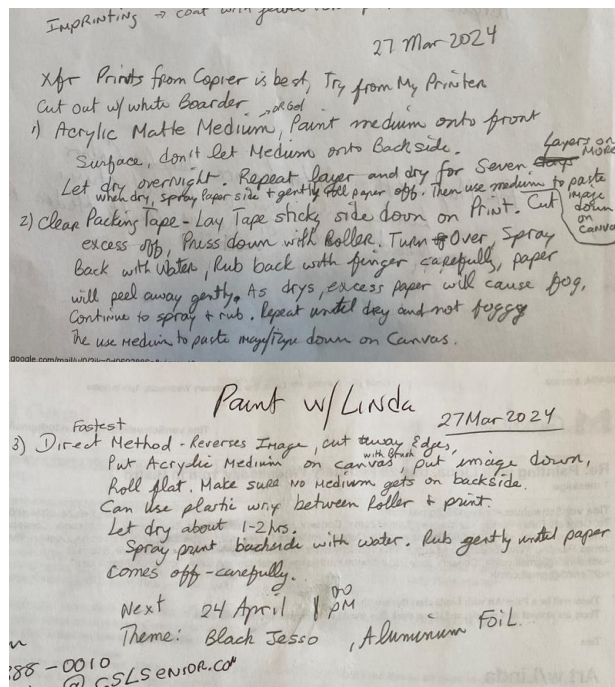 IMPRINTING → coat with
27 Mar 2024
Xfr Prints from Copier is best, Try from My Printer
Cut out w/ white Boarder
1) Acrylic Matte Medium, Paint medium onto front
→ or Gel
Surface, don't let Medium onto Backside.
Let dry overnight. Repeat layer and dry for Seven
Layers or MORE
when dry, spray paper side + gently roll paper off. Then use medium to paste
image down on Canvas
2) Clear Packing Tape - Lay Tape sticky side down on Print. Cut
excess off, Press down with Roller. Turn Over, Spray
Back with Water, Rub back with finger carefully, paper
will peel away gently. As drys, excess paper will cause fog,
Continue to spray + rub. Repeat until dry and not foggy
The use Medium to paste image/Tape down on Canvas.
Paint w/ Linda
27 Mar 2024
Fastest
3) Direct Method - Reverses Image, cut away Edges,
Put Acrylic Medium on canvas, put image down,
with Brush
Roll flat. Make sure No Medium gets on backside.
Can use plastic wrap between Roller + print.
Let dry about 1-2 hrs.
Spray print backside with water. Rub gently until paper
comes off - carefully.
Next 24 April 1 00 PM
Theme: Black Jesso, Aluminium FOIL.
388-0010
@CSLSENSOR.COM